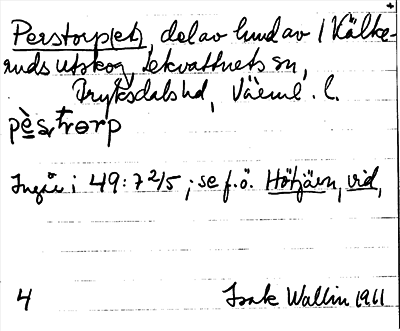 Perstorp(et), del av hmd av 1 Kälke-
ruds utskog, Lekvattnets sn,
Fryksdals hd, Värml. l.
pè̱stɵrp
Ingår i 49:72/5; se f.ö. Hötjärn, vid,
4 Isak Wallin 1961